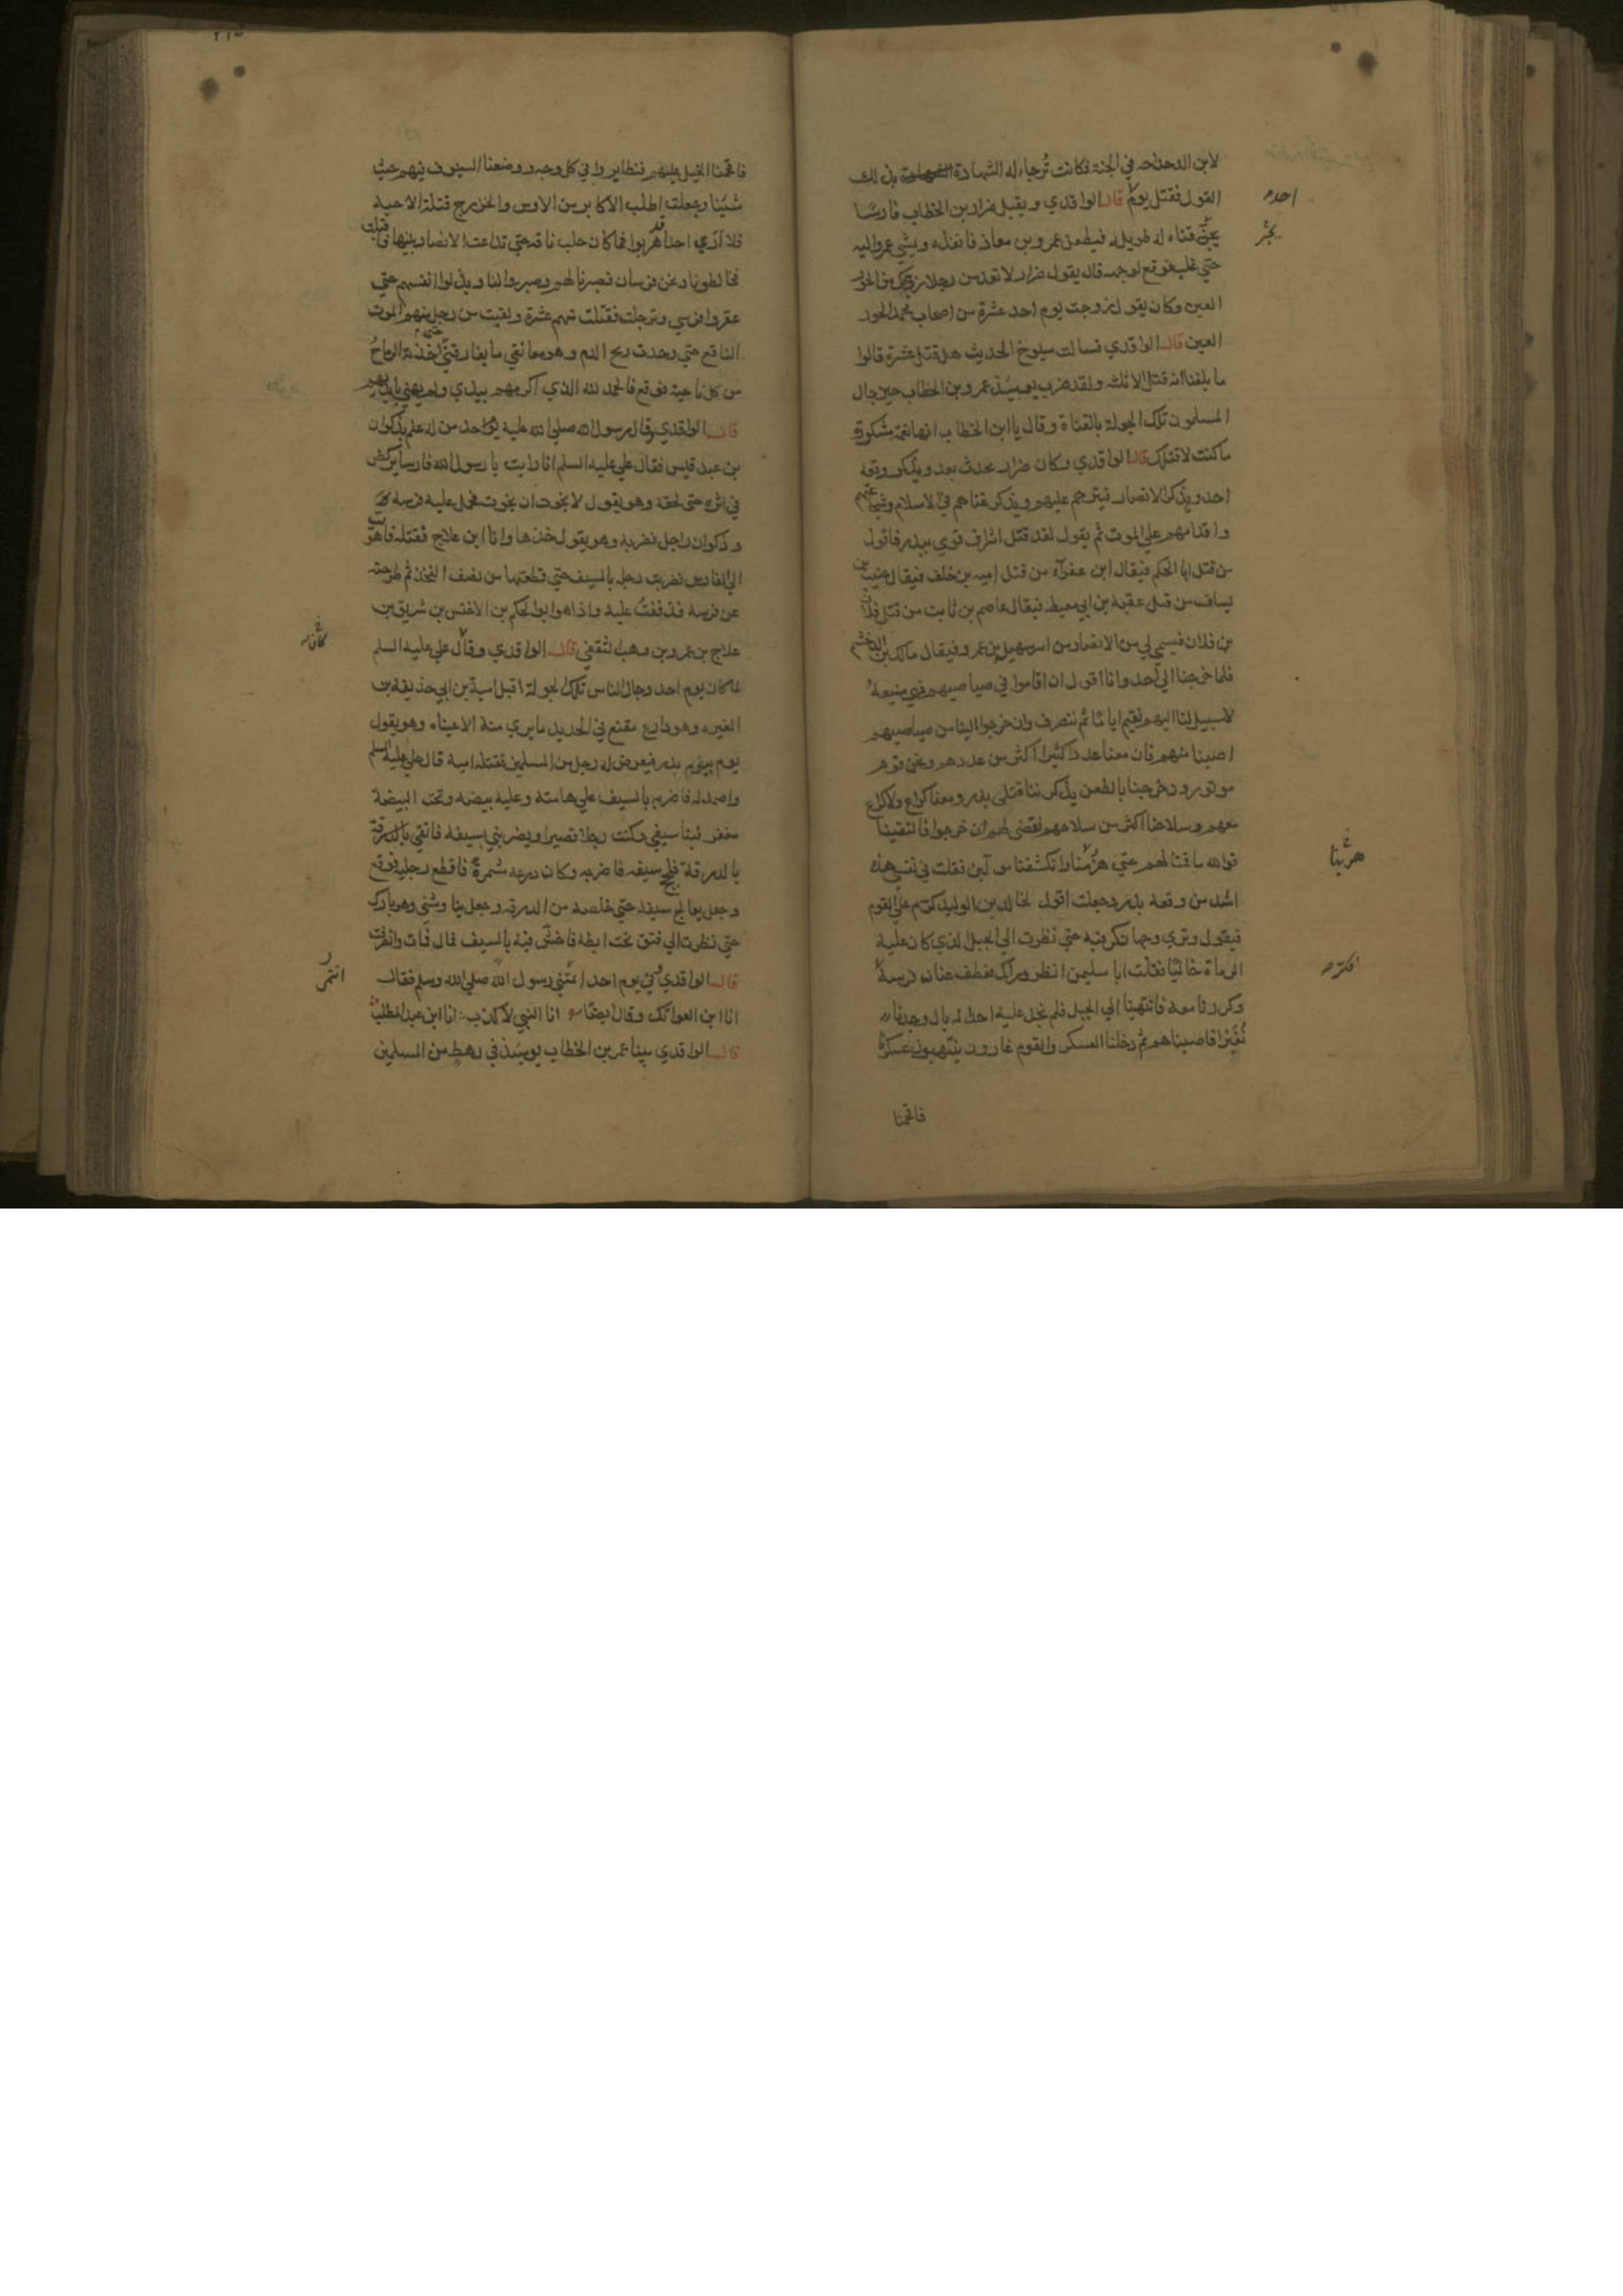 لابن الدحداحه في الجنة فكانت تُرجا له الشهادة بذلك
القول فقتل يوم قال الواقدي ويقبل ضرار بن الخطاب فارسًا
احد
يجرّ قناة له طويله فيطعن عمرو بن معاذ فانفذه ويمشي عمرو اليه
يجر
حتي غلب فوقع لوجهه قال يقول ضرار لا تعدمن رجلا زوجك من الحور
العين وكان يقول زوجت يوم احد عشرة من اصحاب محمد الحور
العين قال الواقدي فسالت شيوخ الحديث هل قتل عشرة قالوا
ما بلغنا انه قتل الا ثلثه ولقد ضرب يوميئذ عمر بن الخطاب حين جال
المسلمون تلك الجولة بالقناة وقال يا ابن الخطاب انها نعمة مشكورة
ما كنت لاقتلك قال الواقدي وكان ضرار يحدث بعد ويذكر وقعة
احد ويذكر الانصار فيترحم عليهم ويذكر غناهم في الاسلام وشجاعتهم
واقدامهم علي الموت ثم يقول لقد قتل اشراف قومي ببدر فاقول
من قتل ابا الحكم فيقال ابن عفرآء من قتل اميه بن خلف فيقال خبيب بن
يساف من قتل عقبة بن ابي معيط فيقال عاصم بن ثابت من قتل فلان
بن فلان فيسمي لي من الانصار من اسر سهيل بن عمرو فيقال مالك بن الدخشم
فلما خرجنا الي احد وانا اقول ان اقاموا في صياصيهم فهي منيعة
لا سبيل لنا اليهم نقيم اياما ثم ننصرف وان خرجوا الينا من صياصيهم
اصبنا منهم فان معنا عددا كثيرا اكثر من عددهم ونحن قوم
موتورون خرجنا بالظعن يذكرننا قتلي بدر ومعنا كراع ولا كراع
معهم وسلاحنا اكثر من سلاحهم فقضي لهم ان خرجوا فالتقينا
فوالله ما قمنا لهم حتي هزمنا وانكشفنا مولين فقلت في نفسي هذه
هربنا
اشد من وقعة بدر وجعلت اقول لخالد بن الوليد كر علي القوم
فيقول وتري وجها نكر فيه حتي نظرت الي الجبل الذي كان علية
الرماة خاليًا فقلت ابا سليمن انظر وراك فعطف عنان فرسة
فكر
وكررنا معه فانتهينا الي الجبل فلم نجد علية احدا له بال وجدنا
نُفَيْرا فاصبناهم ثم دخلنا العسكر والقوم غارون ينتهبون عسكرنا
فاقحمنا
فاقحمنا الخيل عليهم فتطايروا في كل وجه ووضعنا السيوف فيهم حيث
شيُنا وجعلت اطلب الاكابر من الاوس والخزرج قتلة الاحبه
فلا اري احدا قد هربوا فما كان حلب ناقه حتي تداعت الانصار بينها فاقبلت
فخالطونا ونحن فرسان فصبرنا لهم وصبروا لنا وبذلوا انفسهم حتي
عقروا فرسي وترجلت فقتلت منهم عشرة ولقيت من رجل منهم الموت
الناقع حتي وجدت ريح الدم وهو معانقي ما يفارقني حتي اخذته الرماح
من كل ناحية فوقع فالحمد لله الذي اكرمهم بيدي ولم يهني بايديهم
قال الواقدي وقال رسول الله صلي الله عليه يوم احد من له علم بذكوان
بن عبد قيس فقال علي عليه السلم انا رايت يا رسول الله فارسا يركض
في اثره حتي لحقه وهو يقول لا نجوت ان نجوت فحمل علية فرسه
وذكوان راجل فضربه وهو يقول خذها وانا ابن علاج فقتله فاهويت
الي الفارس فضربت رجله بالسيف حتي قطعتها من نصف الفخذ ثم طرحته
عن فرسه فذففتُ عليه واذا هو ابو الحكم بن الاخنس بن شريق بن
علاج بن عمرو بن وهب الثقفي قال الواقدي وقال علي عليه السلم
لما كان يوم احد وجال الناس تلك الجولة اقبل امية بن ابي حذيفه بن
المغيره وهو دارع مقنع في الحديد ما يري منة الا عيناه وهو يقول
يوم بيوم بدر فيعرض له رجل من المسلمين فقتله امية قال علي عليه السلم
واصمد له فاضربه بالسيف علي هامته وعليه بيضه وتحت البيضة
مغفر فنبا سيفي وكنت رجلا قصيرا ويضربني بسيفه فاتقي بالدرقة
بالدرقة فلحج سيفه فاضربه وكان درعه مشمرة فاقطع رجليه فوقع
وجعل يعالج سيفه حتي خلصه من الدرقه وجعل يناوشني وهو بارك
حتي نظرت الي فتق تحت ابطه فاخش فيه بالسيف فمال فمات وانصرفت
قال الواقدي وفي يوم احد انتمي رسول الله صلي الله وسلم فقال
انتمي
انا ابن العواتك وقال ايضا انا النبي لا كذب انا ابن عبد المطلب
قال الواقدي بينا عمر بن الخطاب يوميئذ في رهط من المسلمين